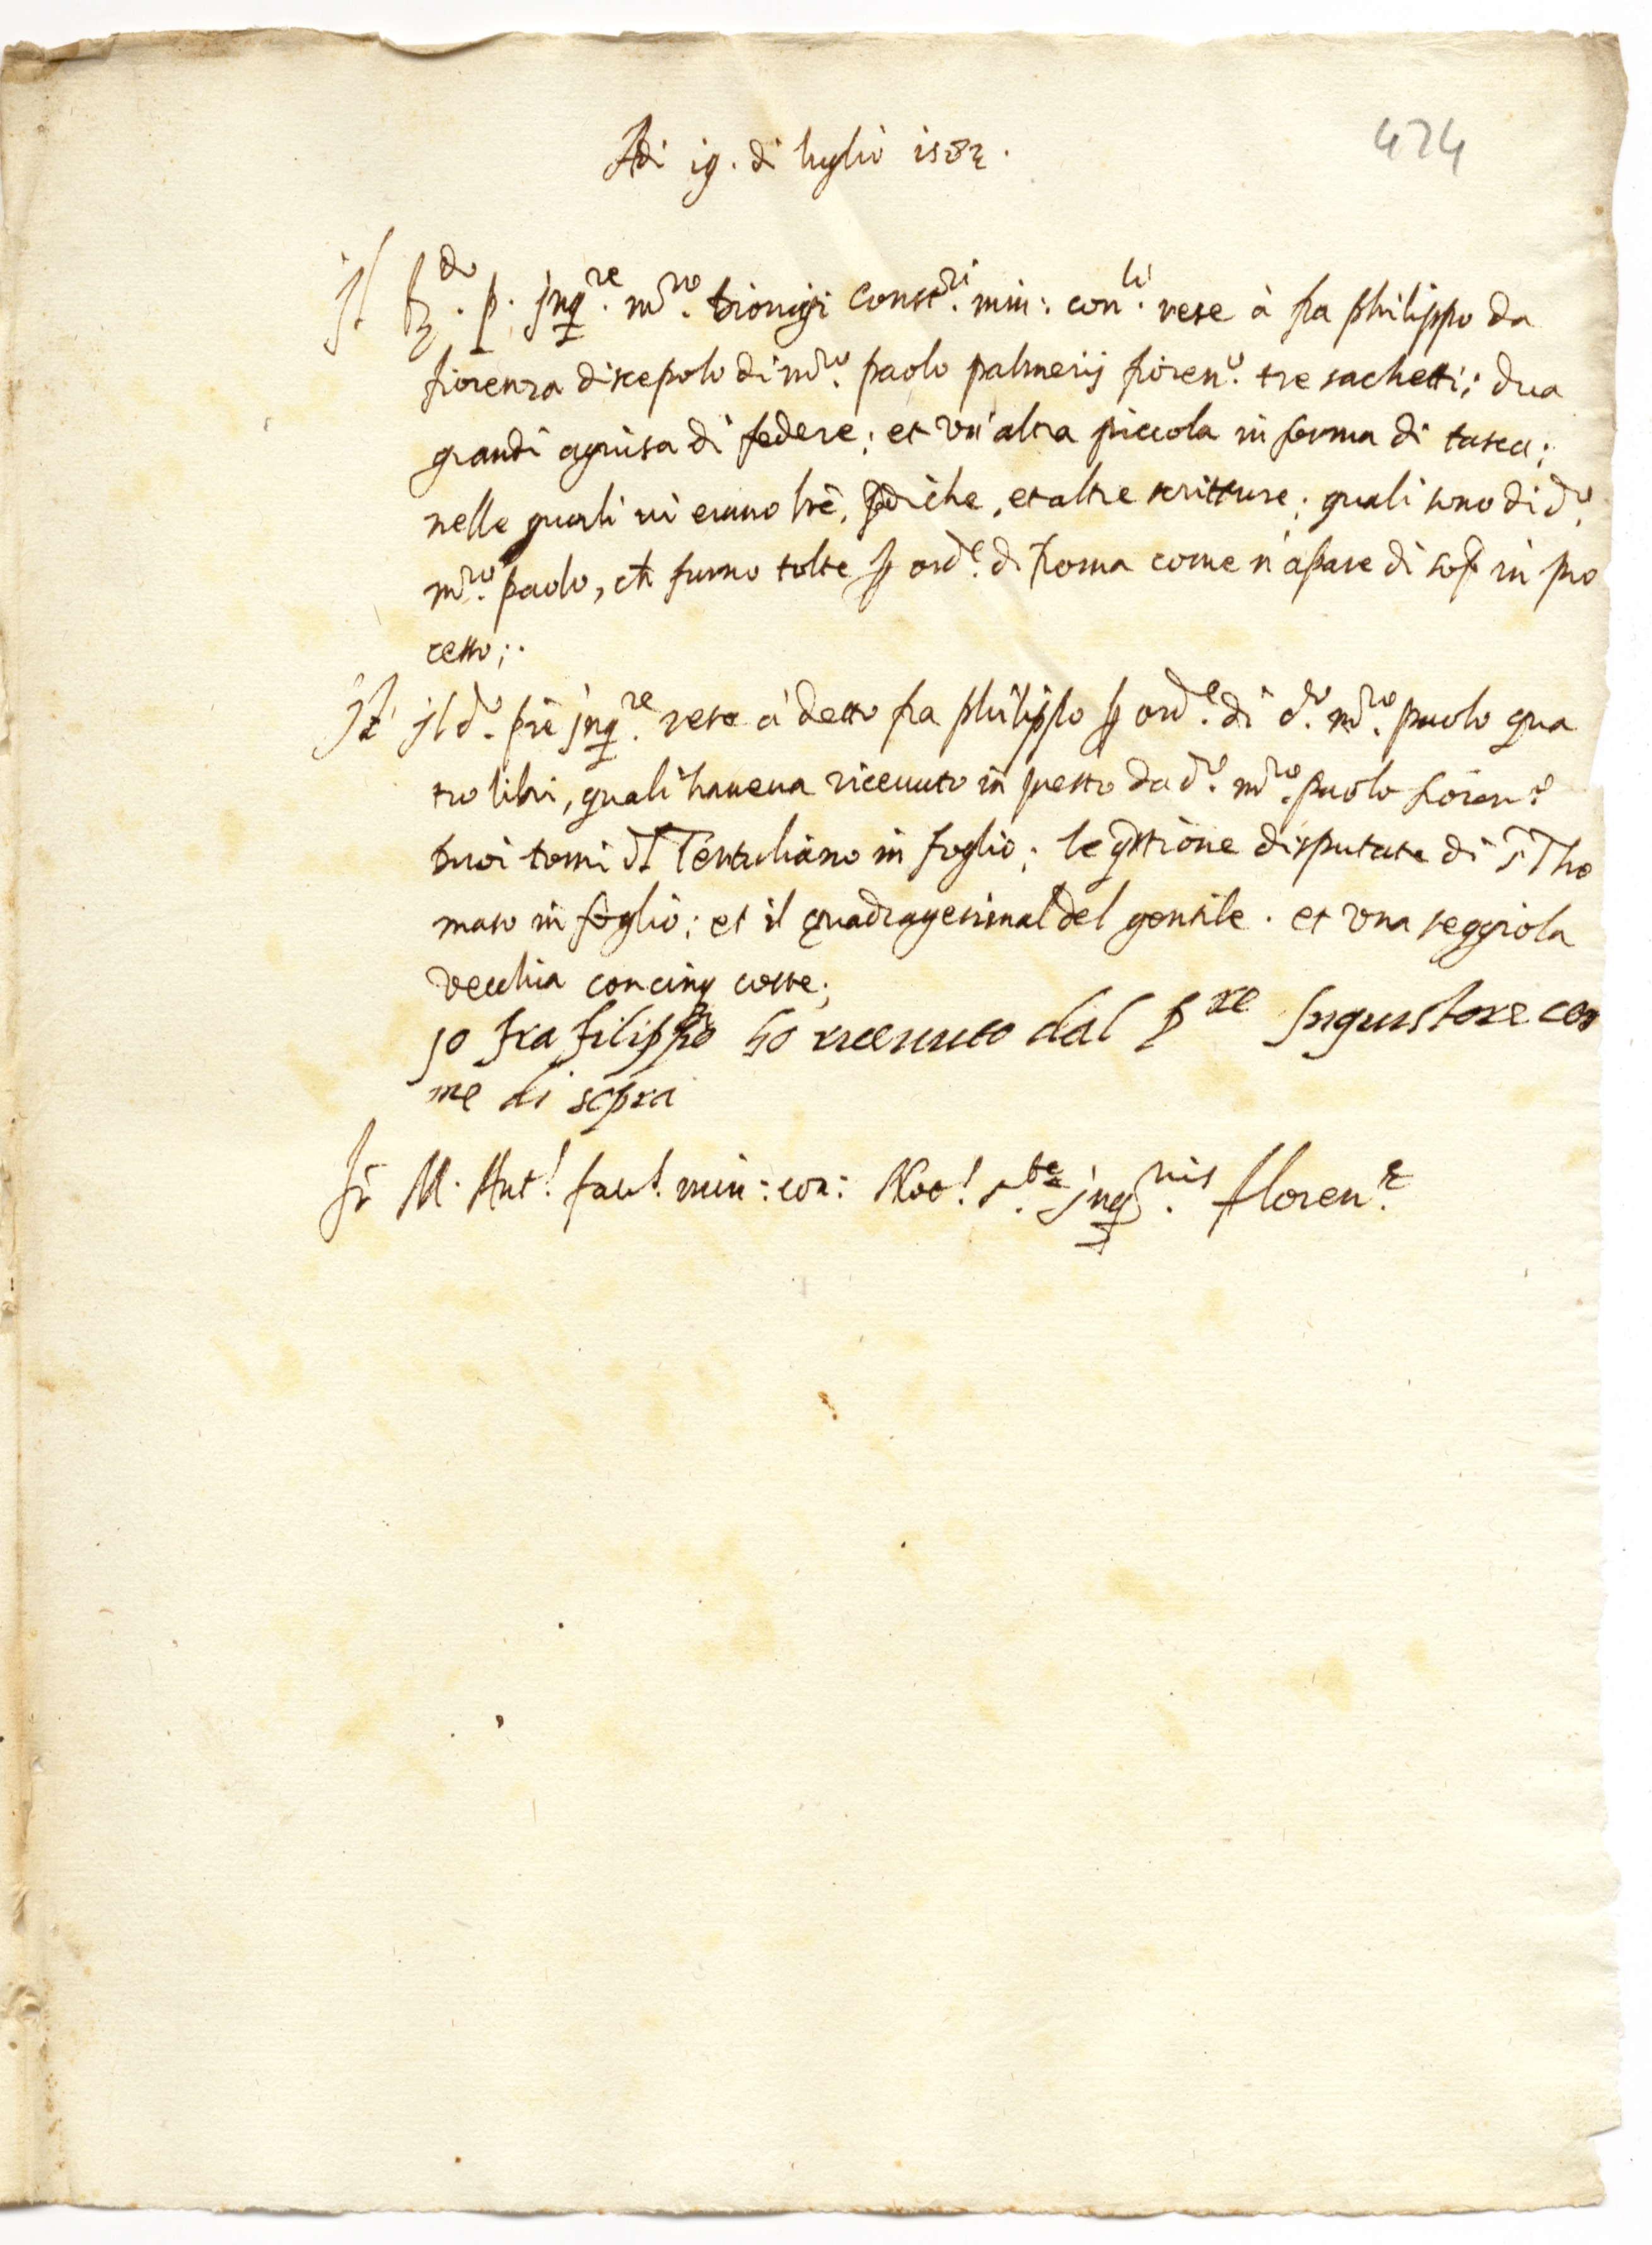 Adi 19. di luglio 1582.
474
Jl R.do p. jnq.re m.ro dionigi Const.ri min: con.li rese à fra philippo da
fiorenza discepolo di m.ro paolo palmerij fioren.o tre sachetti; dua
grandi aguisa di federe; et un'altra piccola in forma di tasca;
nelle quali vi erano lre, prediche, et altre scritture; quali sono di d.o
m.ro paolo, ch furno tolte p ord.e di Roma come n'apare di sop.a in pro
cesso;.
Jt jl d.o pre jnq.re rese à detto fra philippo p ord.e di d.o m.ro paolo qua
tro libri, quali haveva ricevuto in presto da d.o m.ro paolo fioren.o
duoi tomi di Tertuliano in foglio; le qstione disputate di s. Tho
maso in foglio; et il quadragesimal del gentile. et una seggiola
vecchia con cinq cosse;
jo fra filippo ho riceuuto dal p.re Jnquisitore co
me di sopra
fr M. Ant.o min: con: Not.o s.tae jnq.nis floren.e